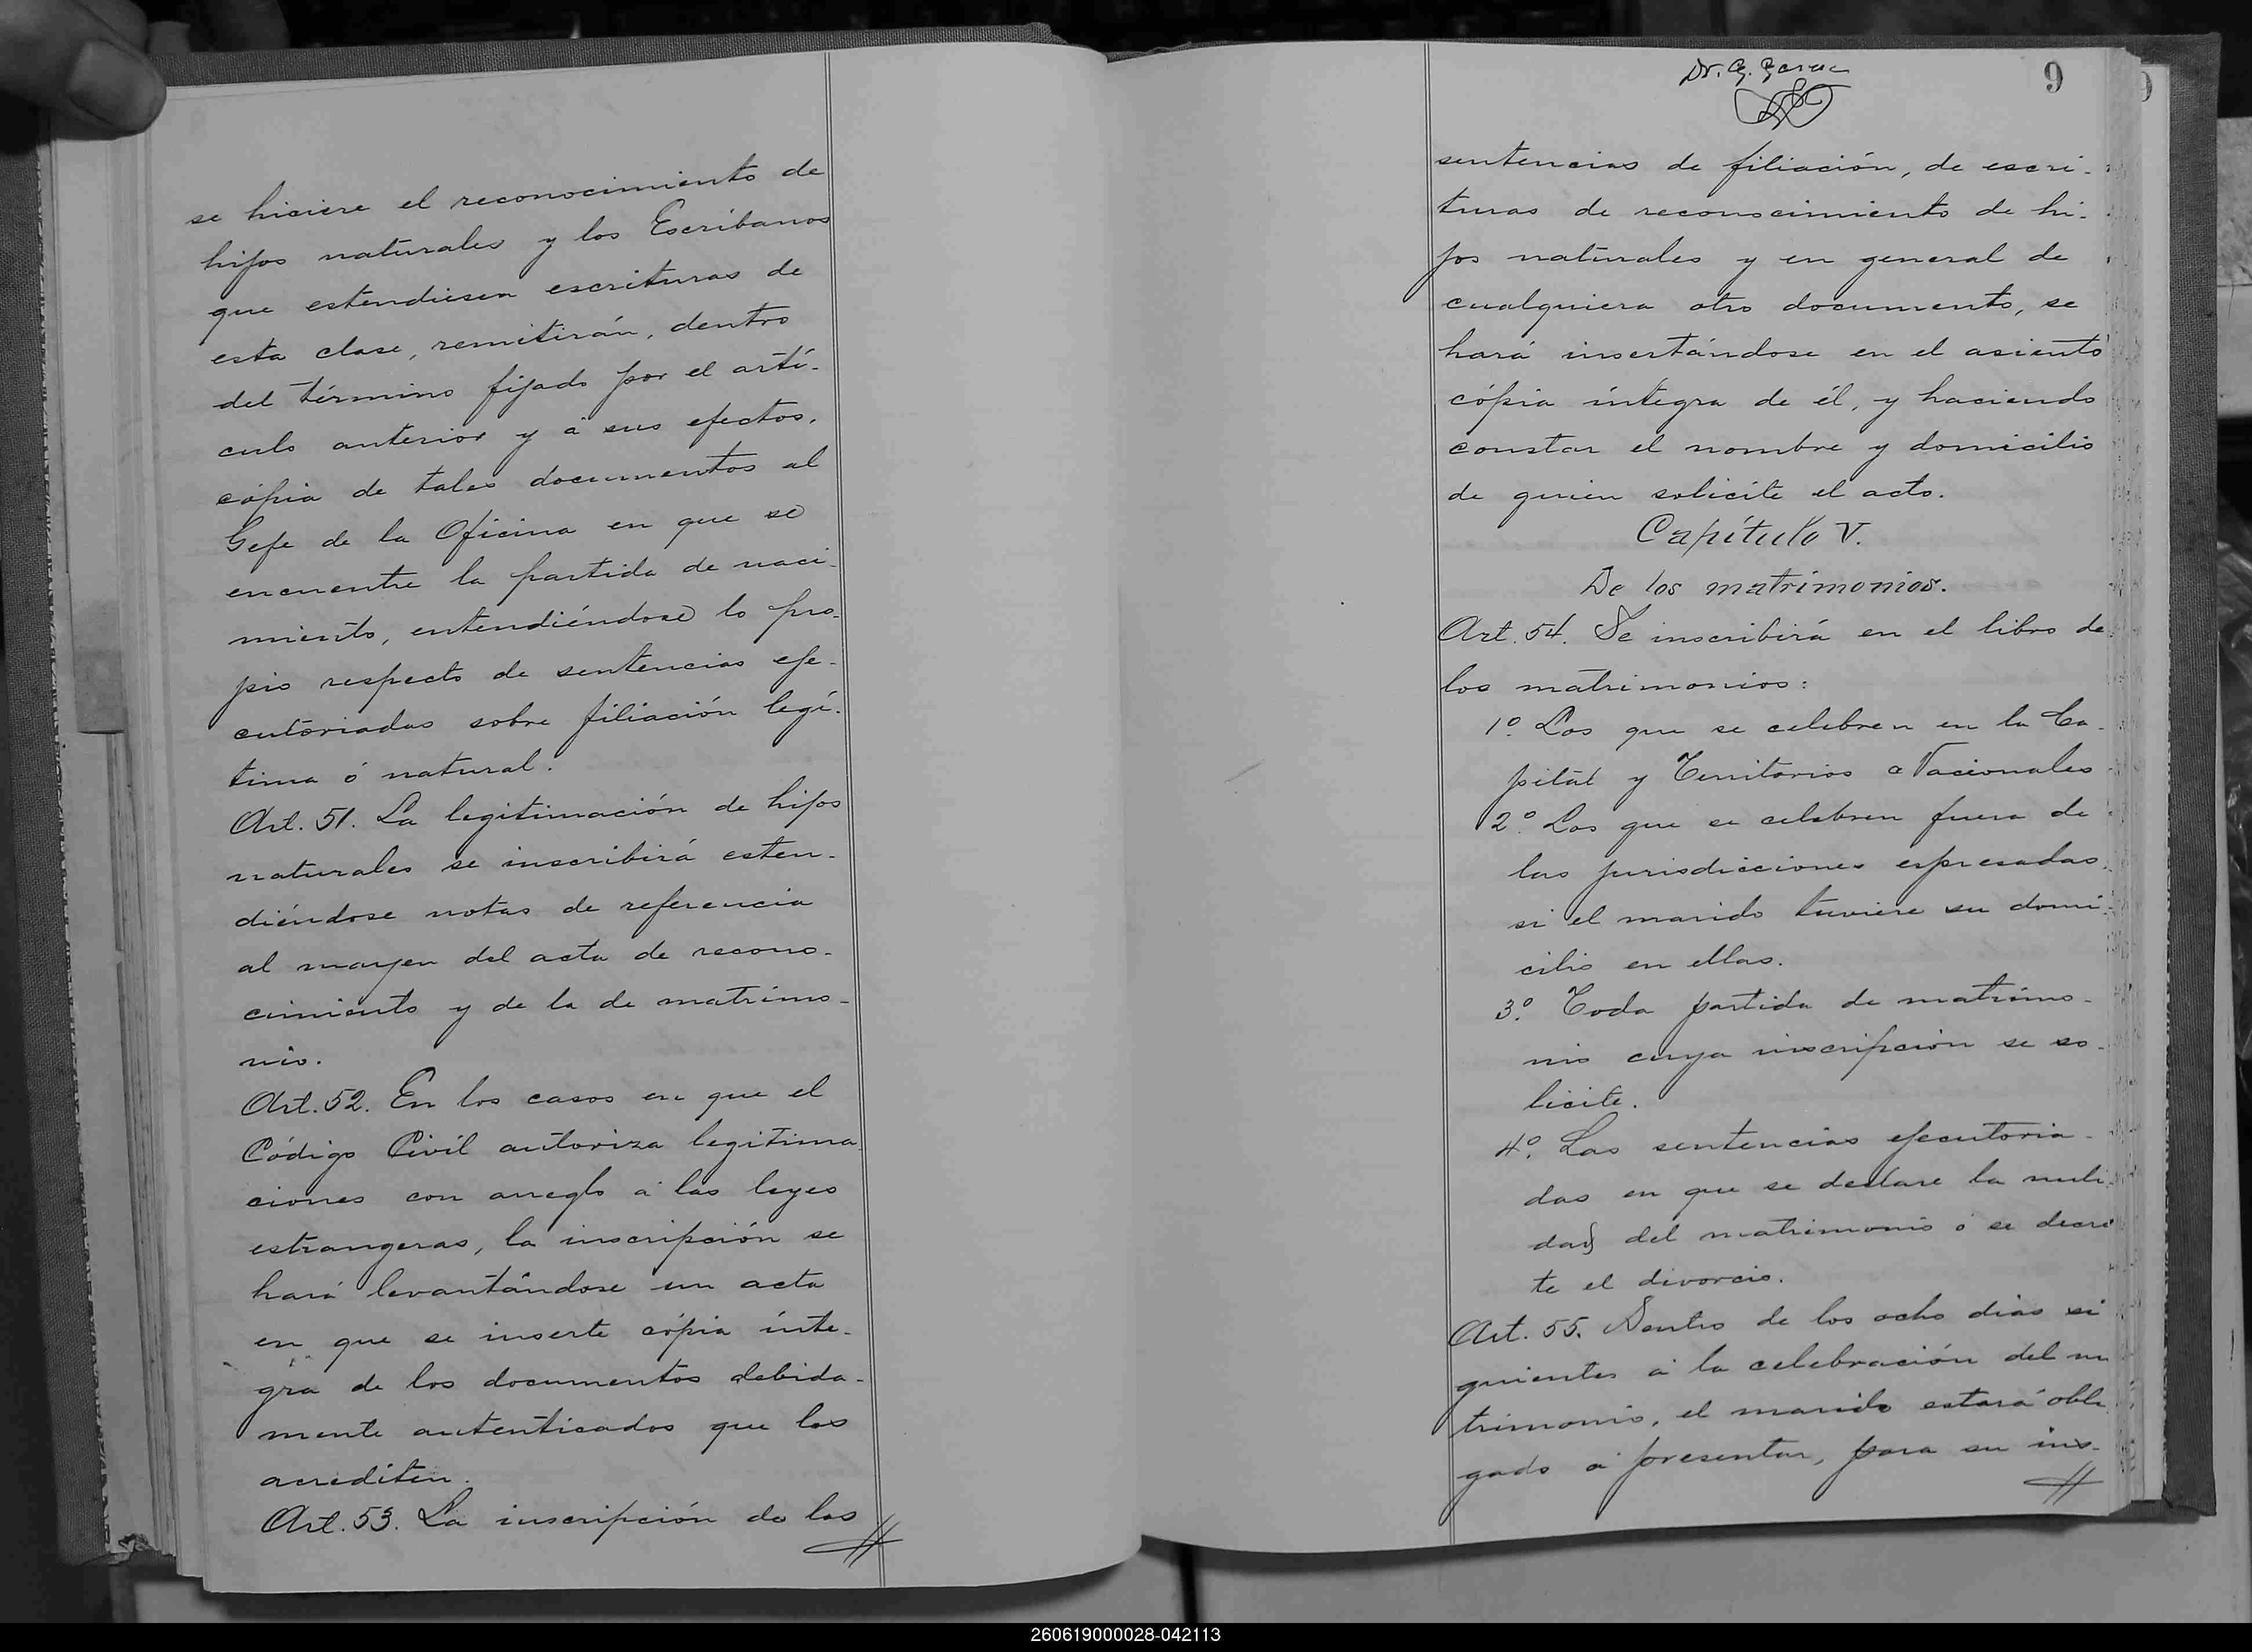 se hiciere el reconocimiento de
hijos naturales y los Escribanos
que estendiesen escrituras de
esta clase, remitirán, dentro
del término fijado por el artí-
culo anterior y á sus efectos,
cópia de tales documentos al
Gefe de la Oficina en que se
encuentre la partida de naci-
miento, entendiéndose lo pro-
pio respecto de sentencias eje-
cutoriadas sobre filiación legí-
tima ó natural.
Art. 51. La legitimación de hijos
naturales se inscribirá esten-
diéndose notas de referencia
al margen del acta de recono-
cimiento y de la de matrimo-
nio.
Art. 52. En los casos en que el
Código Civil autoriza legitima
ciones con arreglo á las leyes
estrangeras, la inscripción se
hará levantándose un acta
en que se inserte cópia ínte-
gra de los documentos debida-
mente autenticados que las
acrediten.
Art. 53. La inscripción de las
Dr. G.
9
sentencias de filiación, de escri-
turas de reconocimiento de hi-
jos naturales y en general de
cualquiera otro documento, se
hará insertándose en el asiento
cópia íntegra de él, y haciendo
constar el nombre y domicilio
de quien solicite el acto.
Capítulo V.
De los matrimonios.
Art. 54. Se inscribirá en el libro de
los matrimonios:
1º. Los que se celebren en la Ca-
pital y Territorios Nacionales
2º. Los que se celebren fuera de
las jurisdicciones espresadas
si el marido tuviere su domi-
cilio en ellas.
3º. Toda partida de matrimo-
nio cuya inscripción se so-
licite.
4º. Las sentencias ejecutoria-
das en que se declare la nuli-
dad del matrimonio ó se decre
te el divorcio.
Art. 55. Dentro de los ocho dias si
guientes á la celebración del m
trimonio, el marido estará obli
gado á presentar, para su ins-
260619000028-042113